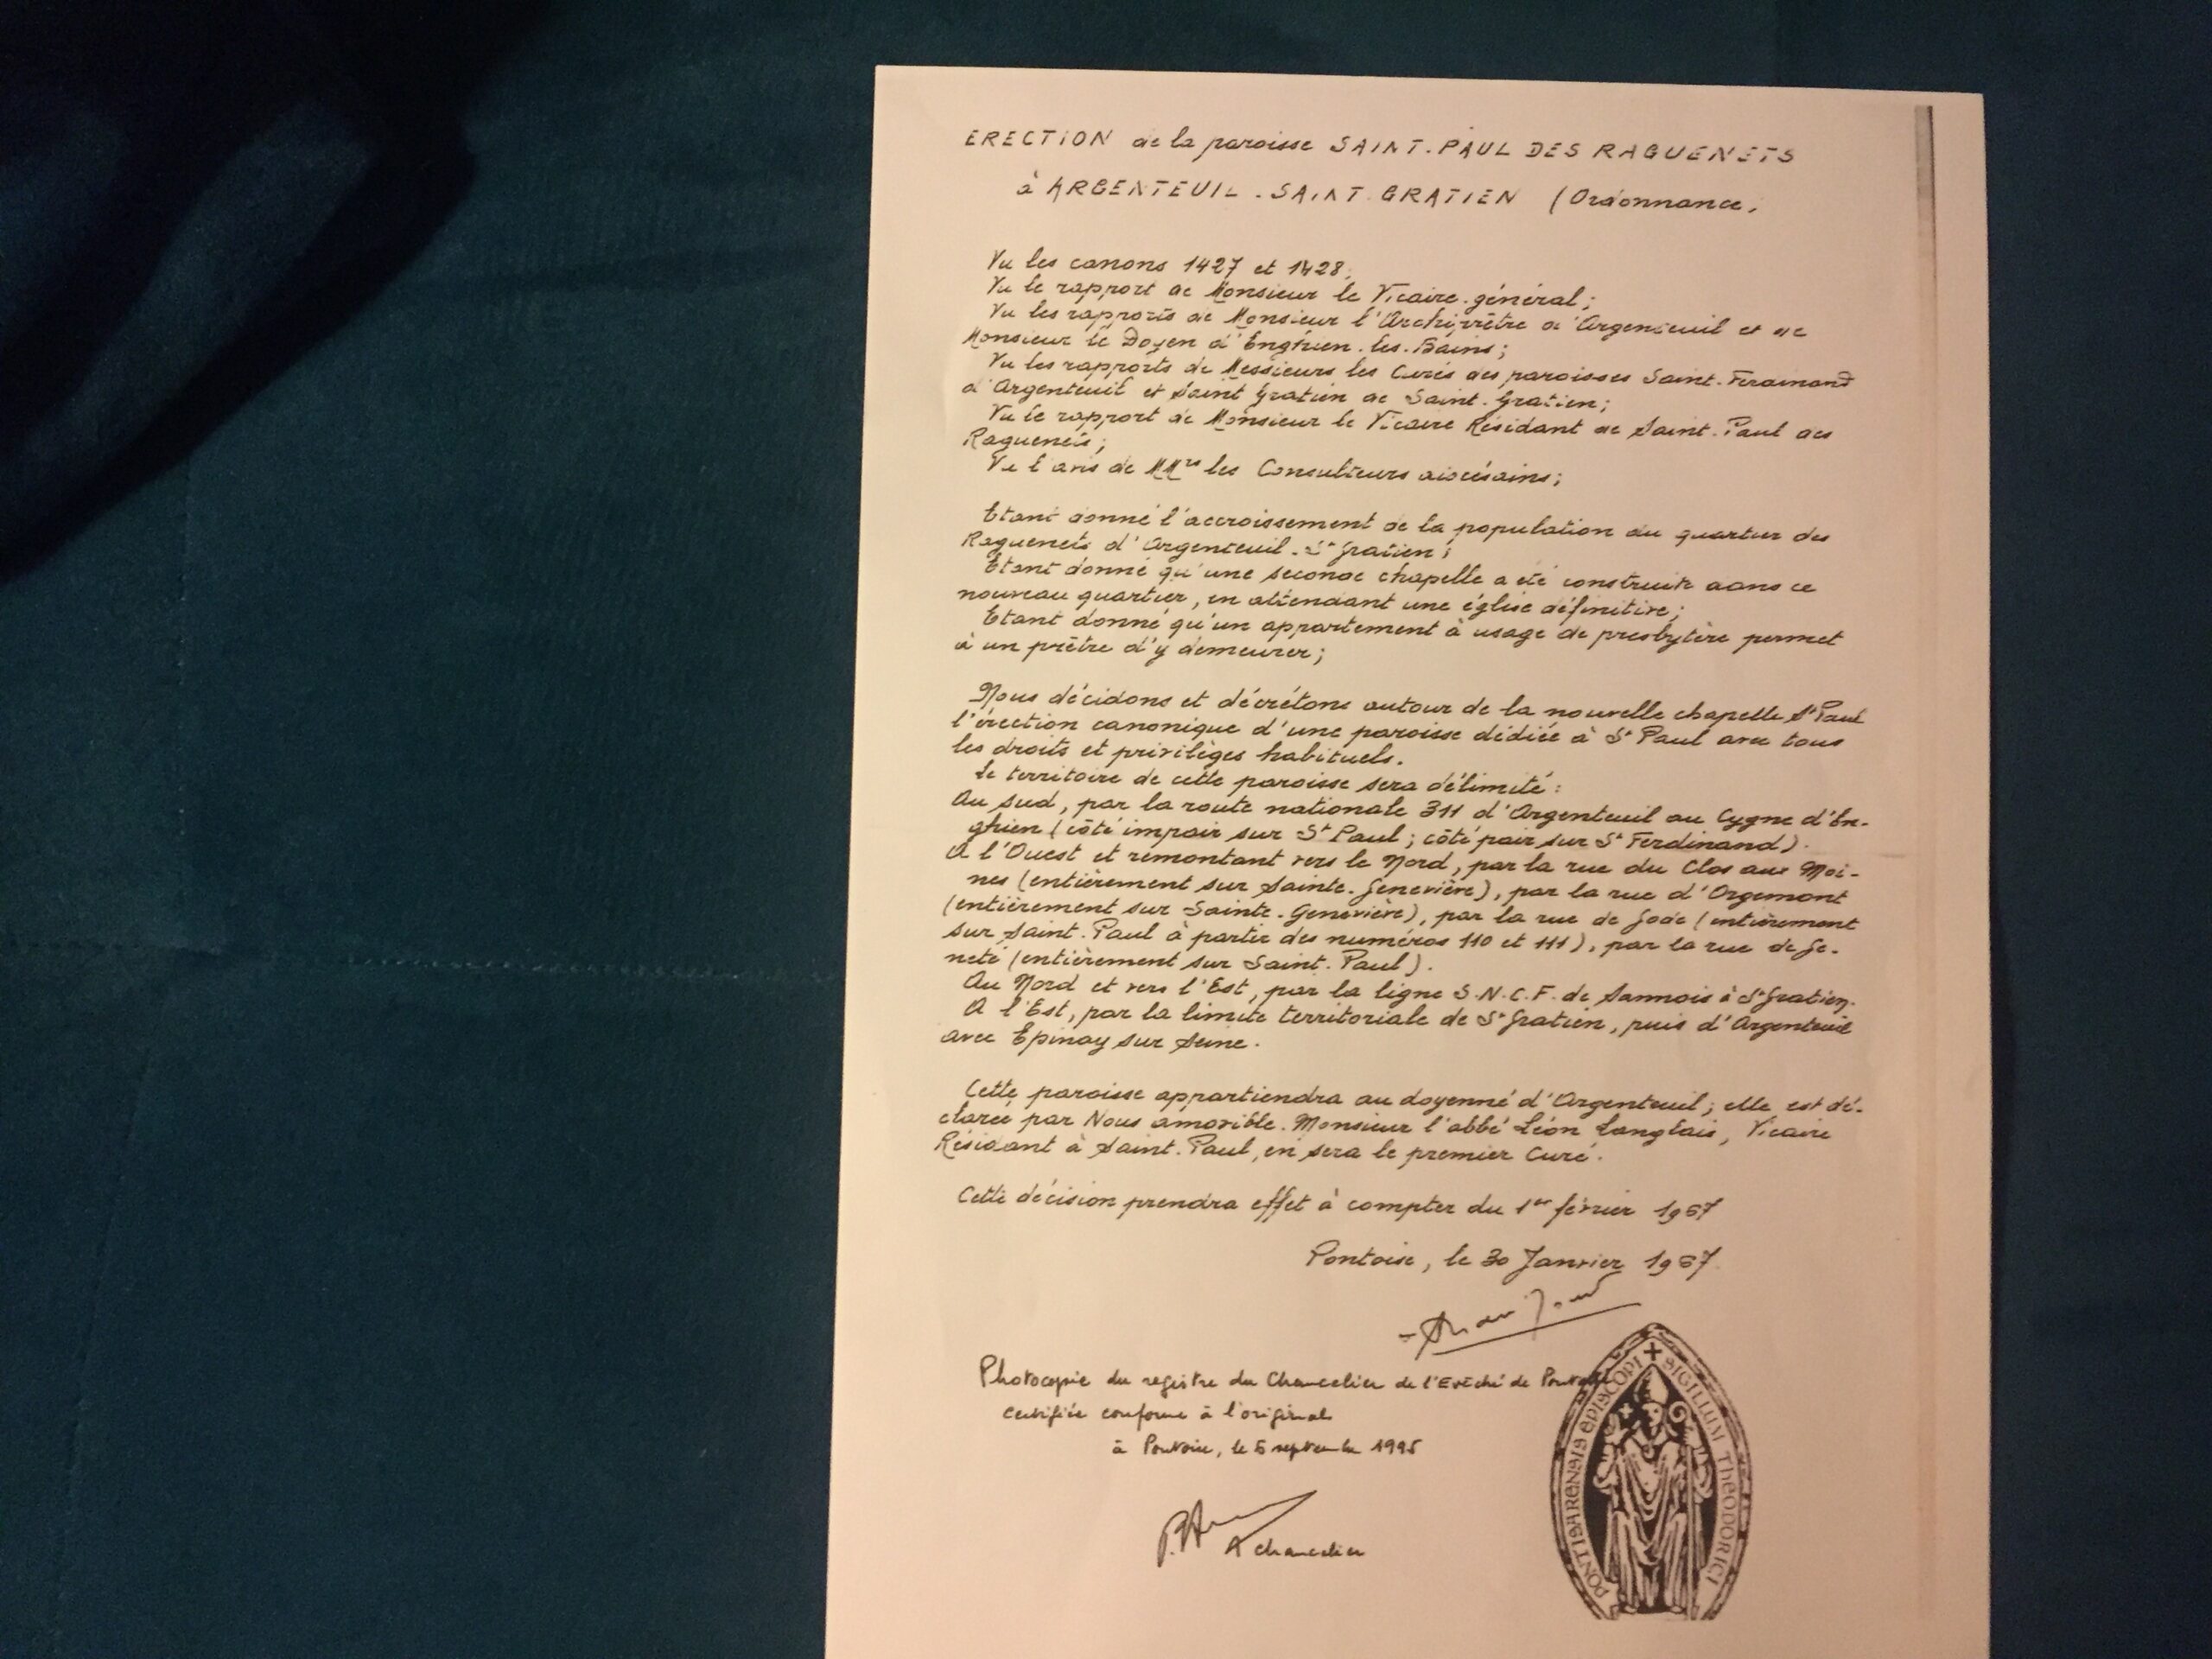 ERECTION de la paroisse SAINT-PAUL DES RAGUENETS
à ARGENTEUIL - SAINT-GRATIEN (Ordonnance)
Vu les canons 1427 et 1428;
Vu le rapport de Monsieur le Vicaire-général;
Vu les rapports de Monsieur l'Archiprêtre d'Argenteuil et de
Monsieur le Doyen d'Enghien-les-Bains;
Vu les rapports de Messieurs les Curés des paroisses Saint-Ferdinand
d'Argenteuil et Saint Gratien de Saint-Gratien;
Vu le rapport de Monsieur le Vicaire Résidant de Saint-Paul des
Raguenets;
Vu l'avis de MMrs les Consulteurs diocésains;
Etant donné l'accroissement de la population du quartier des
Raguenets d'Argenteuil-St Gratien;
Etant donné qu'une seconde chapelle a été construite dans ce
nouveau quartier, en attendant une église définitive;
Etant donné qu'un appartement à usage de presbytère permet
à un prêtre d'y demeurer;
Nous décidons et décrétons autour de la nouvelle chapelle St Paul
l'érection canonique d'une paroisse dédiée à St Paul avec tous
les droits et privilèges habituels.
Le territoire de cette paroisse sera délimité:
Au Sud, par la route nationale 311 d'Argenteuil au Cygne d'En-
ghien (côté impair sur St Paul; côté pair sur St Ferdinand).
A l'Ouest et remontant vers le Nord, par la rue du Clos aux Moi-
nes (entièrement sur Sainte-Geneviève), par la rue d'Orgemont
(entièrement sur Sainte-Geneviève), par la rue de Gode (entièrement
sur Saint-Paul à partir des numéros 110 et 111), par la rue de Ge-
neté (entièrement sur Saint-Paul).
Au Nord et vers l'Est, par la ligne S.N.C.F. de Sannois à St Gratien.
A l'Est, par la limite territoriale de St Gratien, puis d'Argenteuil
avec Epinay sur Seine.
Cette paroisse appartiendra au doyenné d'Argenteuil; elle est dé-
clarée par Nous amovible. Monsieur l'abbé Léon Langlais, Vicaire
Résidant à Saint-Paul, en sera le premier Curé.
Cette décision prendra effet à compter du 1er février 1967
Pontoise, le 30 Janvier 1967.
Photocopie du registre du Chancelier de l'Evêché de Pontoise
certifiée conforme à l'original
à Pontoise, le 5 septembre 1995
chancelier
SIGILLUM THEODORICI
PONTISARENSIS EPISCOPI